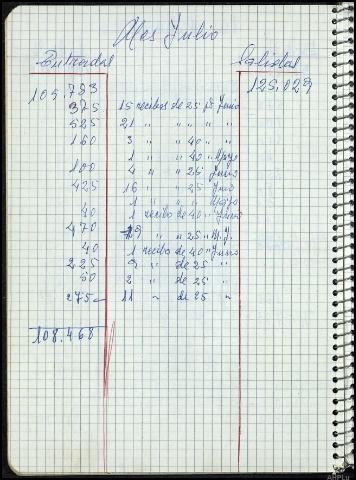 Mes Julio
Entradas Salidas
105.783 125.029
375 15 recibos de 25 pts Junio
525 21 " " " "
160 3 " " 40 " "
1 " " 40 " Mayo
100 4 " " 25 Junio
425 16 " " 25 Junio
1 " " " Mayo
40 1 recibo de 40 " Junio
470 " " 25 " M.J.
40 1 recibo de 40 " Junio
225 9 " de 25 "
50 2 " de 25 "
275 11 " de 25 "
108.468